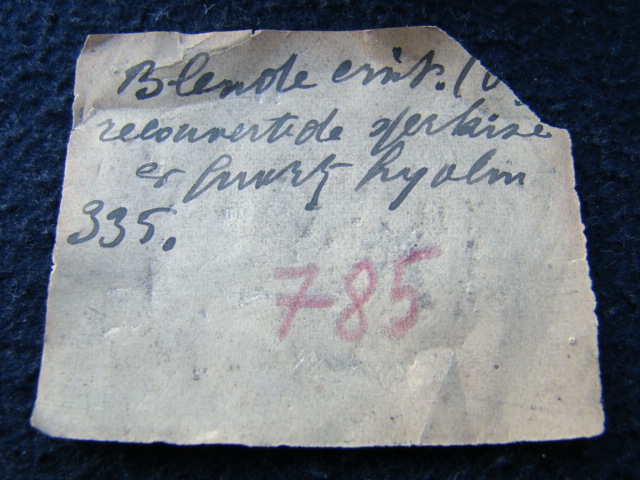 Blende crist. (
recouverte de
et quartz hyalin
335.
785